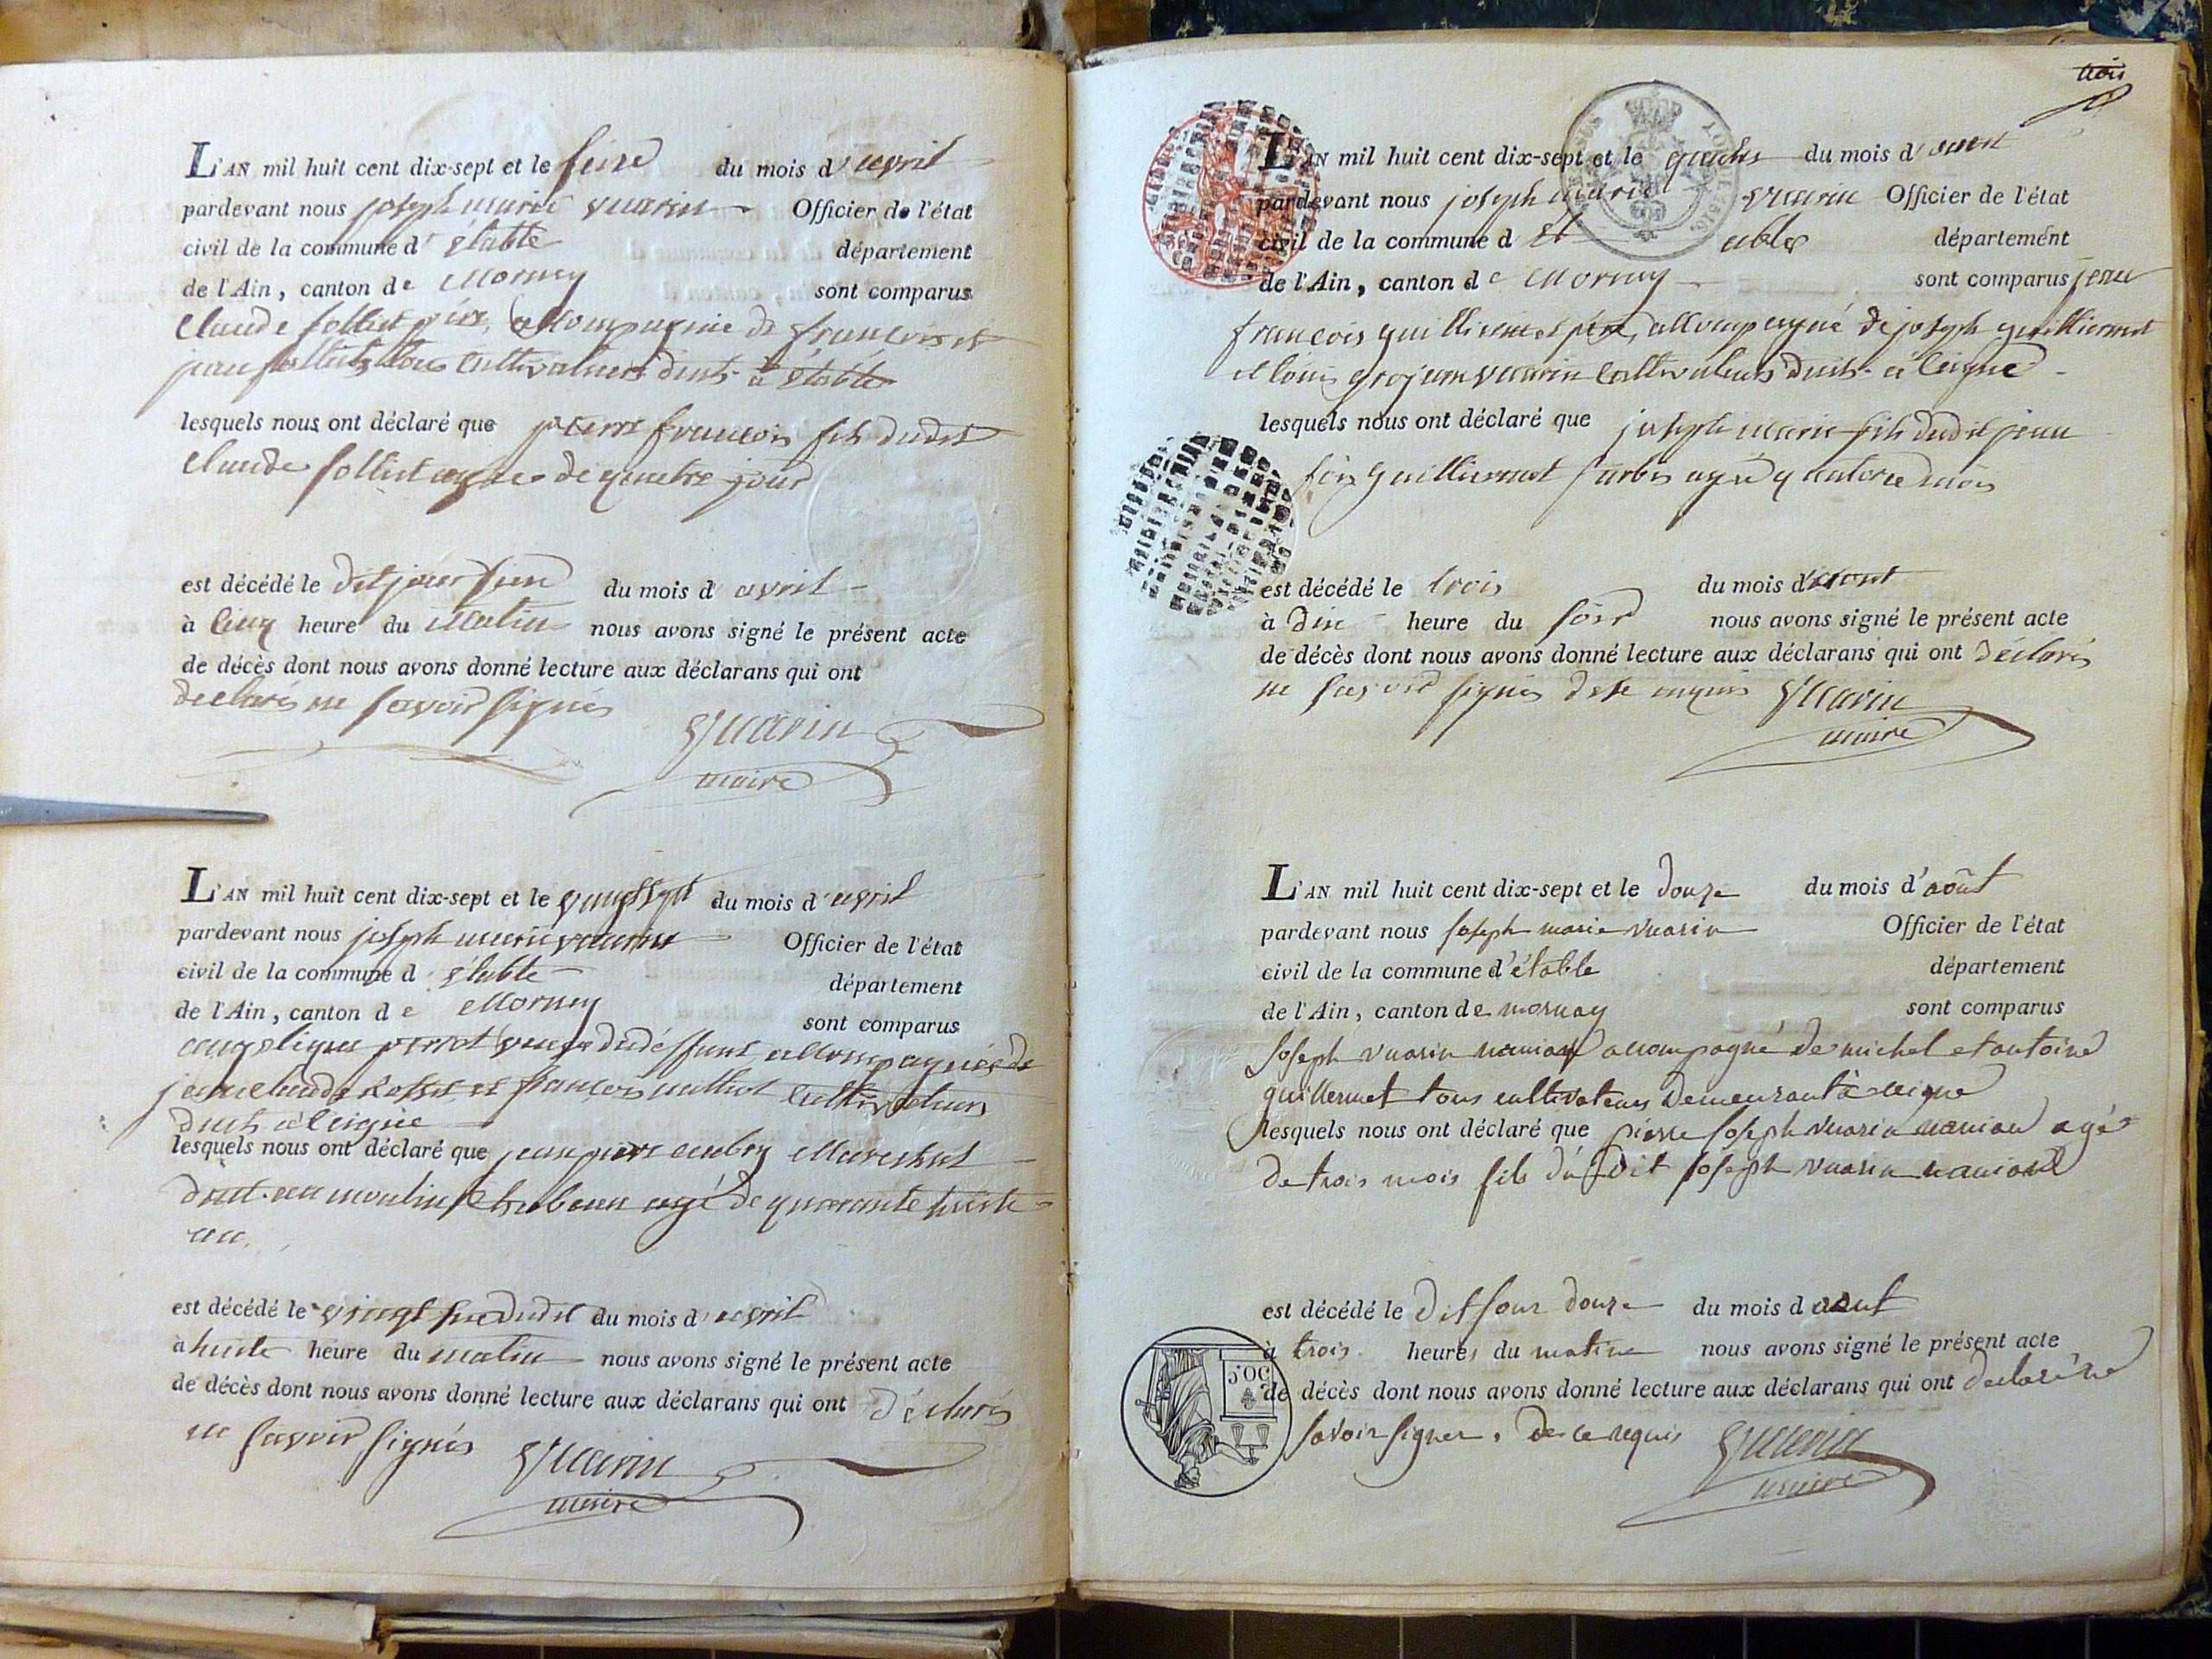 L'AN mil huit cent dix-sept et le seize du mois d'avril
pardevant nous joseph marie vuarin Officier de l'état
civil de la commune d'étable département
de l'Ain, canton de Mornay sont comparus
Claude follliet père, accompagnie de francois et
jean tous Cultivateurs dmts à étable
lesquels nous ont déclaré que pierre francois fils dudit
Claude agé de quatre jour
est décédé le ditjour seize du mois d avril
à Cinq heure du Matin nous avons signé le présent acte
de décès dont nous avons donné lecture aux déclarans qui ont
declarés ne savoir signés
Vuarin
maire
L'AN mil huit cent dix-sept et le vingt sept du mois d'avril
pardevant nous joseph marie vuarin Officier de l'état
civil de la commune d étable département
de l'Ain, canton de Mornay sont comparus
angelique perrot veuve dudéffunt accompagnée de
jean claude et francois Cultivateurs
dmts à Ceignie
lesquels nous ont déclaré que jean pierre Mareschal
dmt au moulin agé de quarante huite
an
est décédé le vingt six dudit du mois d'avril
à huite heure du matin nous avons signé le présent acte
de décès dont nous avons donné lecture aux déclarans qui ont déclarés
ne savoir signés Vuarin
maire
trois
L'AN mil huit cent dix-sept et le quatre du mois d'aout
pardevant nous joseph marie vuarin Officier de l'état
civil de la commune d Et able département
de l'Ain, canton de Mornay sont comparus jean
francois guilliermet père, accompagné de joseph guilliermet
et louis grosjean vuarin Cultivateurs dmts à Ceigne
lesquels nous ont déclaré que joseph marie fils dudit jean
fois guilliermet agé quatorze mois
est décédé le trois du mois d'aout
à dix heure du soir nous avons signé le présent acte
de décès dont nous avons donné lecture aux déclarans qui ont déclarés
ne savoir signés de ce enquis Vuarin
maire
L'AN mil huit cent dix-sept et le douze du mois d'août
pardevant nous Joseph marie Vuarin Officier de l'état
civil de la commune d'étable département
de l'Ain, canton de mornay sont comparus
Joseph vuarin accompagné de michel et antoine
guillermet tous cultivateurs demeurant à ceigne
lesquels nous ont déclaré que pierre Joseph vuarin agé
de trois mois fils du dit joseph vuarin
est décédé le dit jour douze du mois d aout
à trois heures du matin nous avons signé le présent acte
de décès dont nous avons donné lecture aux déclarans qui ont declaré ne
savoir signer, de ce requis Vuarin
maire